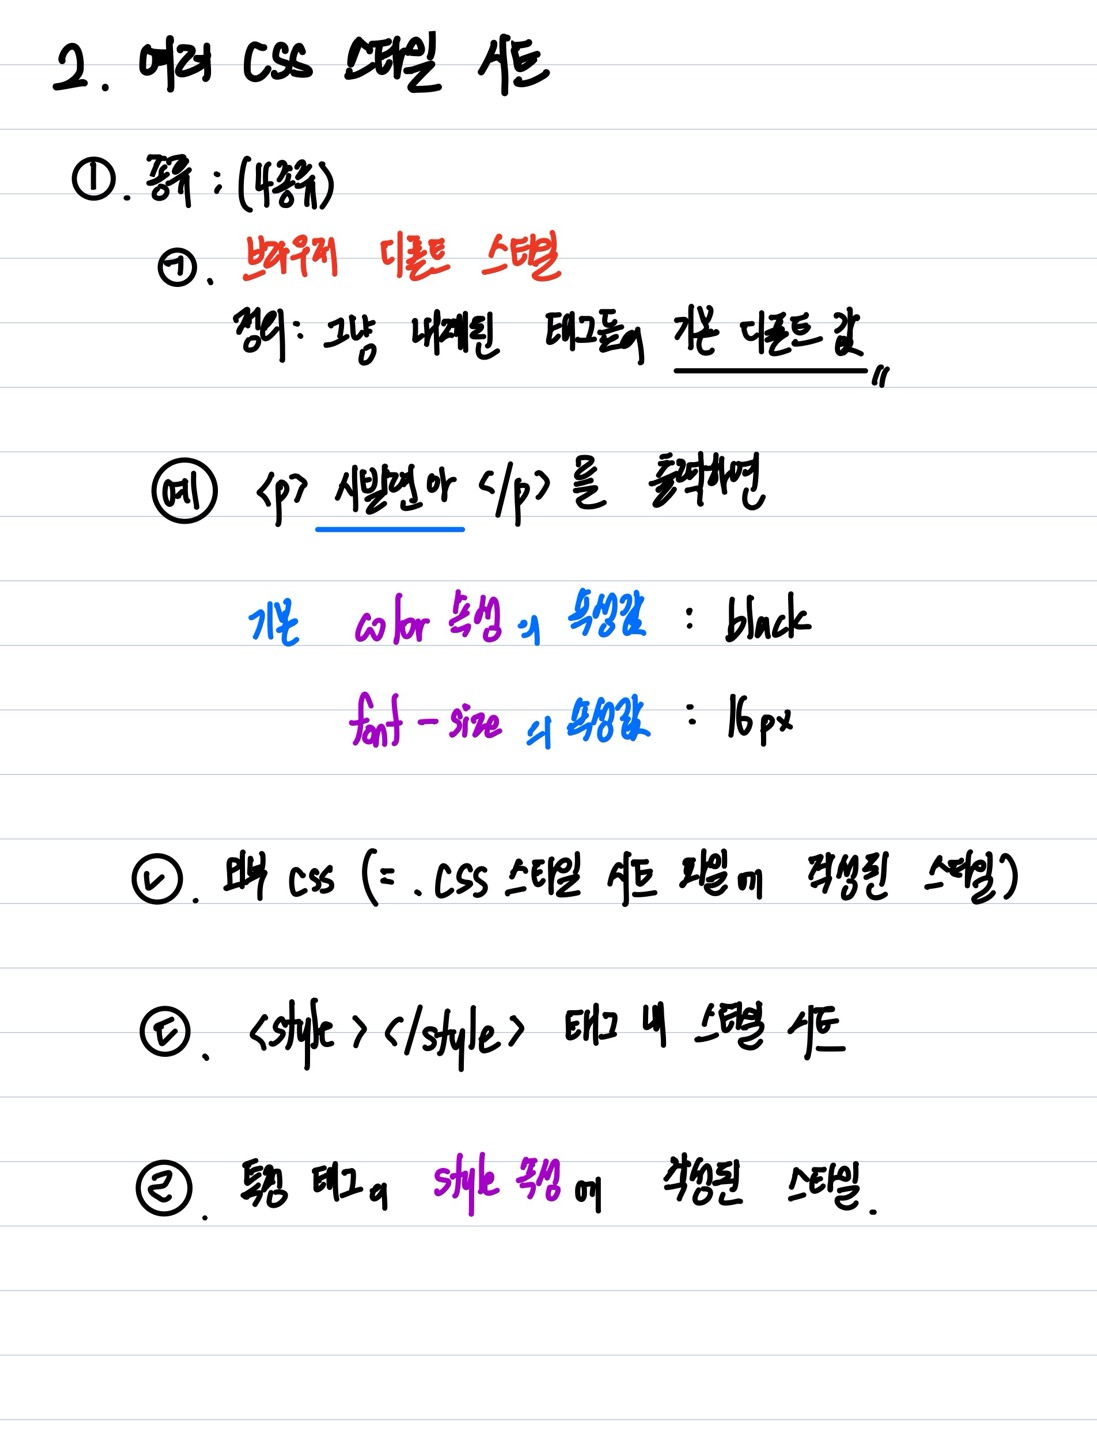 2. 여러 CSS 스타일 시트
①. 종류 : (4종류)
㉠. 브라우저 디폴트 스타일
정의 : 그냥 내재된 태그들의 기본 디폴트 값
예 <p> 시발련아 </p> 를 출력하면
기본 color 속성의 속성값 : black
font - size 의 속성값 : 16px
㉡. 외부 css (= .css 스타일 시트 파일에 작성된 스타일)
㉢. <style> </style> 태그 내 스타일 시트
㉣. 특정 태그의 style 속성에 작성된 스타일.